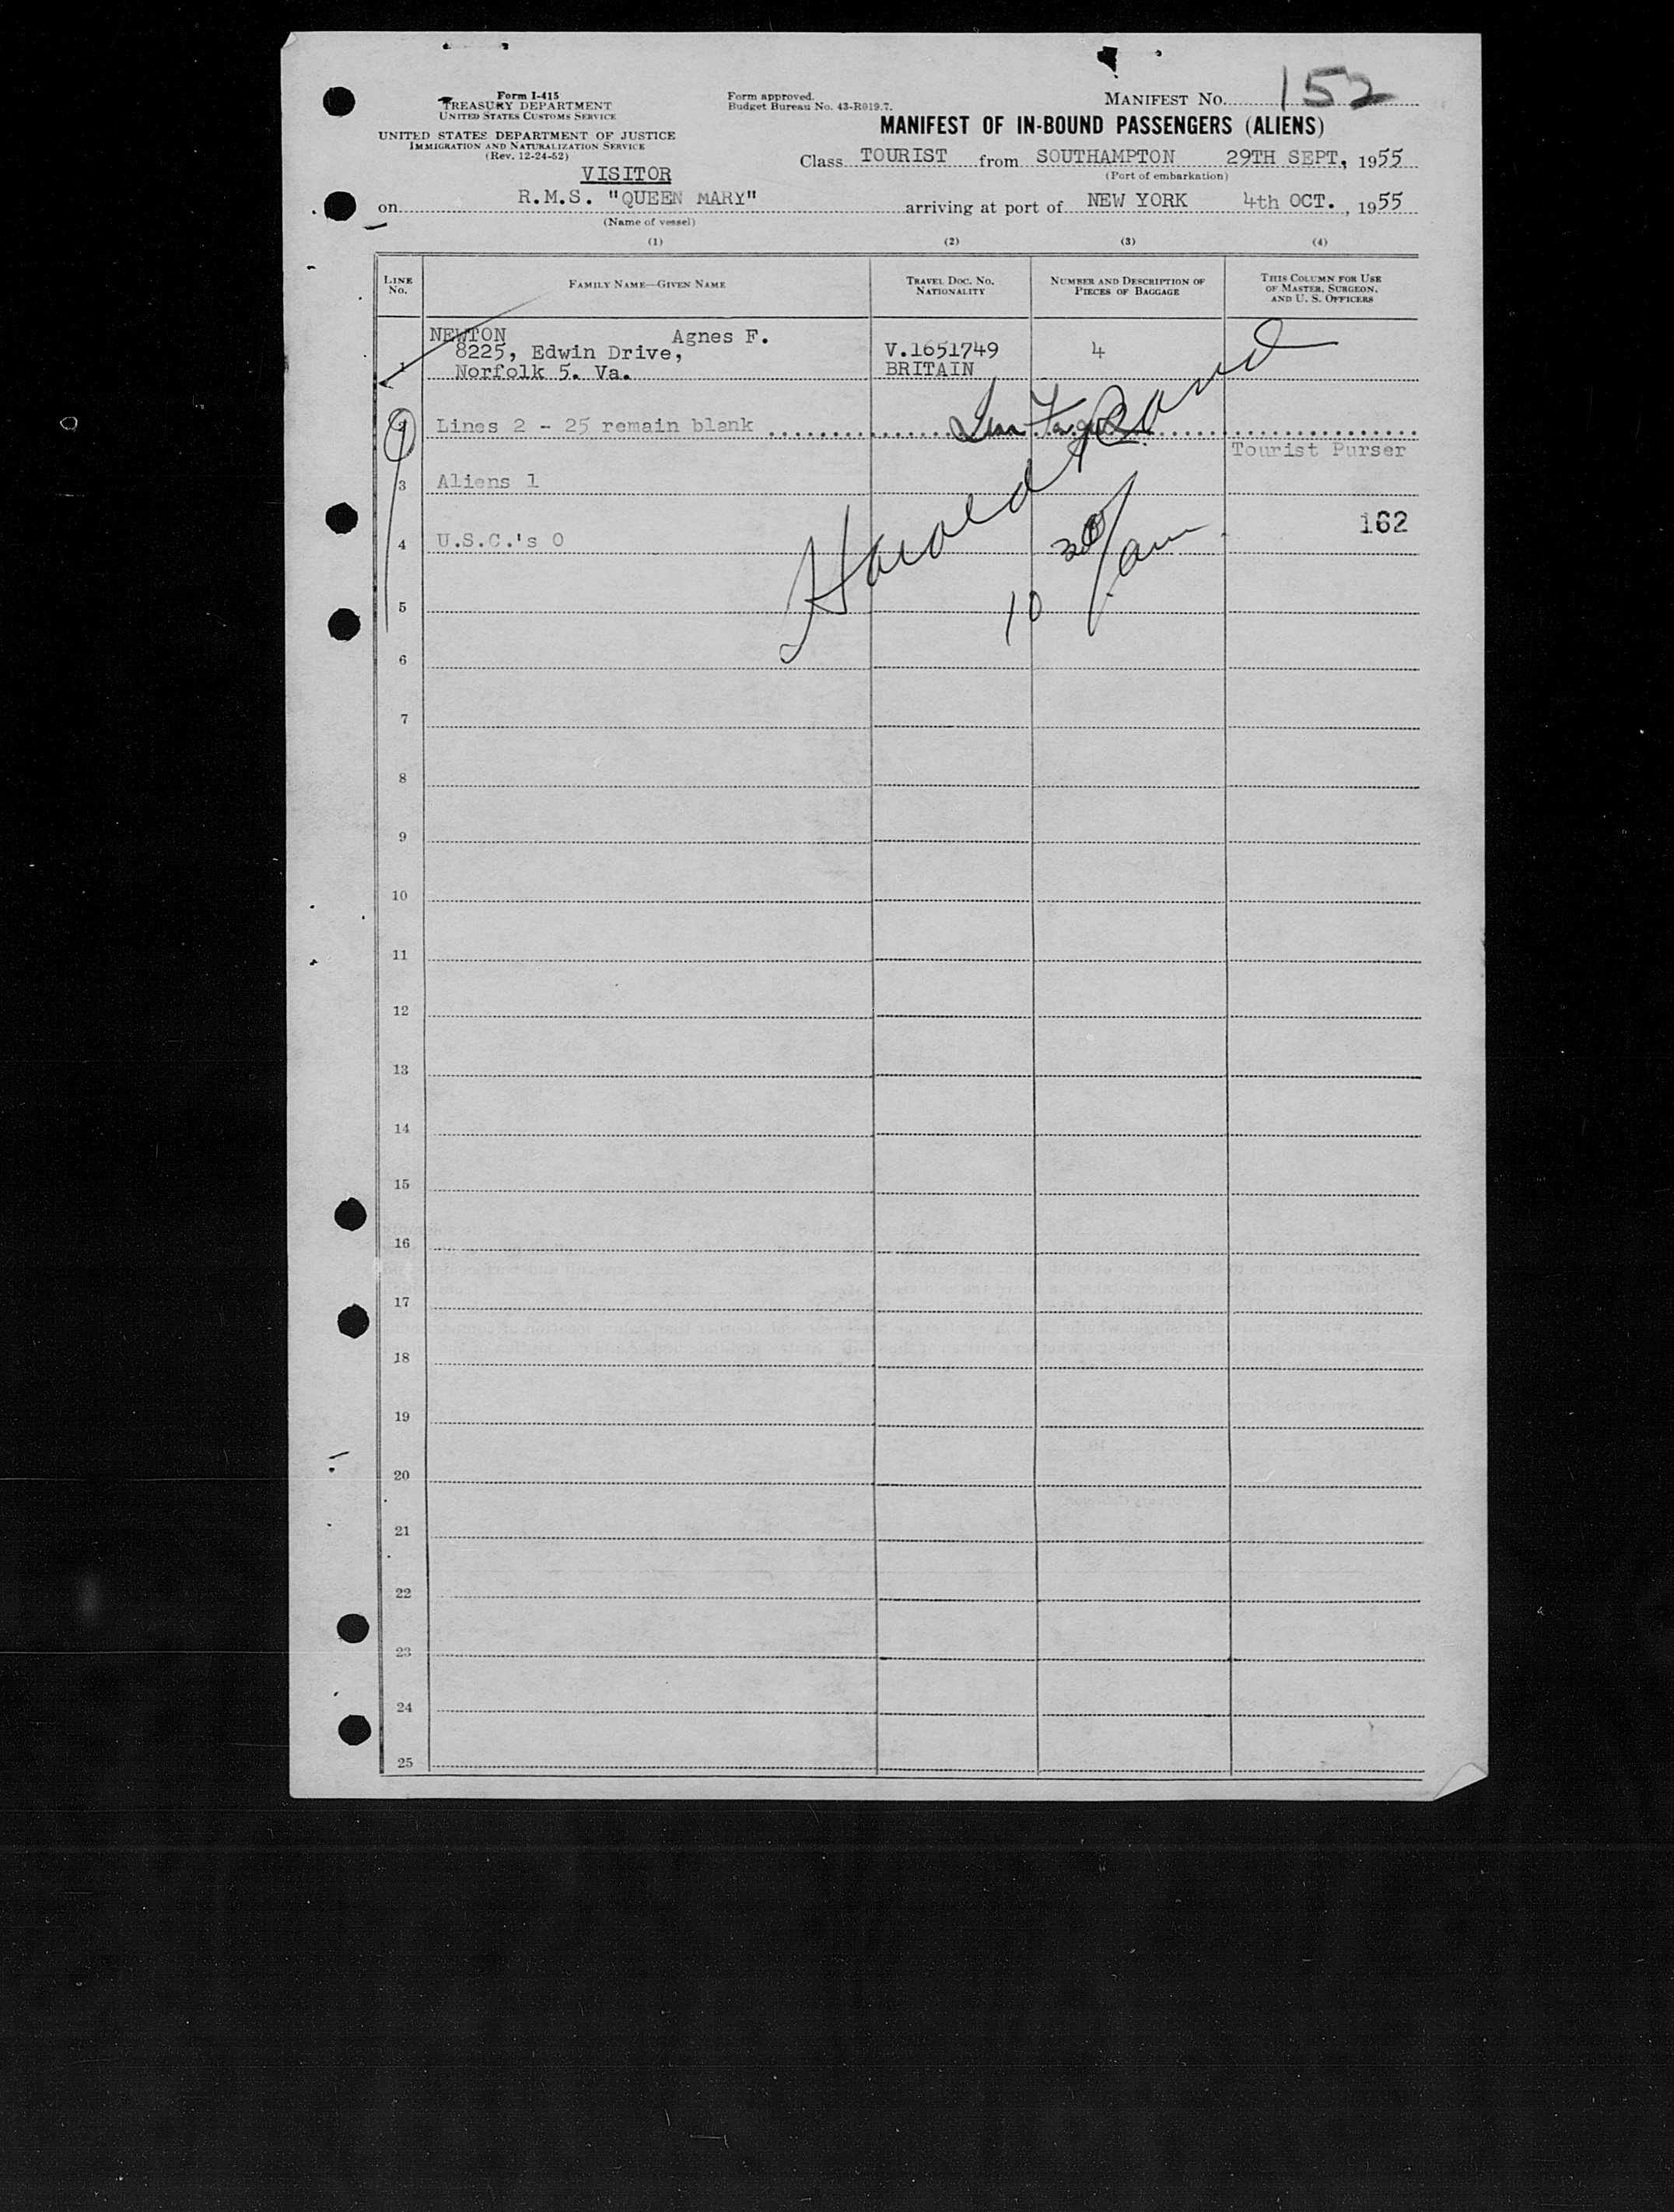 Form I-415
TREASURY DEPARTMENT
UNITED STATES CUSTOMS SERVICE
UNITED STATES DEPARTMENT OF JUSTICE
IMMIGRATION AND NATURALIZATION SERVICE
(Rev. 12-24-52)
Form approved.
Budget Bureau No. 43-R019.7.
MANIFEST No. 152
MANIFEST OF IN-BOUND PASSENGERS (ALIENS)
Class TOURIST from SOUTHAMPTON 29TH SEPT, 1955
(Port of embarkation)
VISITOR
on R.M.S. "QUEEN MARY" arriving at port of NEW YORK 4th OCT. , 1955
(Name of vessel)
(1) (2) (3) (4)
LINE No. FAMILY NAME—GIVEN NAME TRAVEL DOC. NO. NATIONALITY NUMBER AND DESCRIPTION OF PIECES OF BAGGAGE THIS COLUMN FOR USE OF MASTER, SURGEON, AND U. S. OFFICERS
NEWTON Agnes F.
8225, Edwin Drive, V.1651749 4
1 Norfolk 5. Va. BRITAIN
2 Lines 2 - 25 remain blank
Tourist Purser
3 Aliens 1
162
4 U.S.C.'s 0
Harold
10 30/am
5
6
7
8
9
10
11
12
13
14
15
16
17
18
19
20
21
22
23
24
25